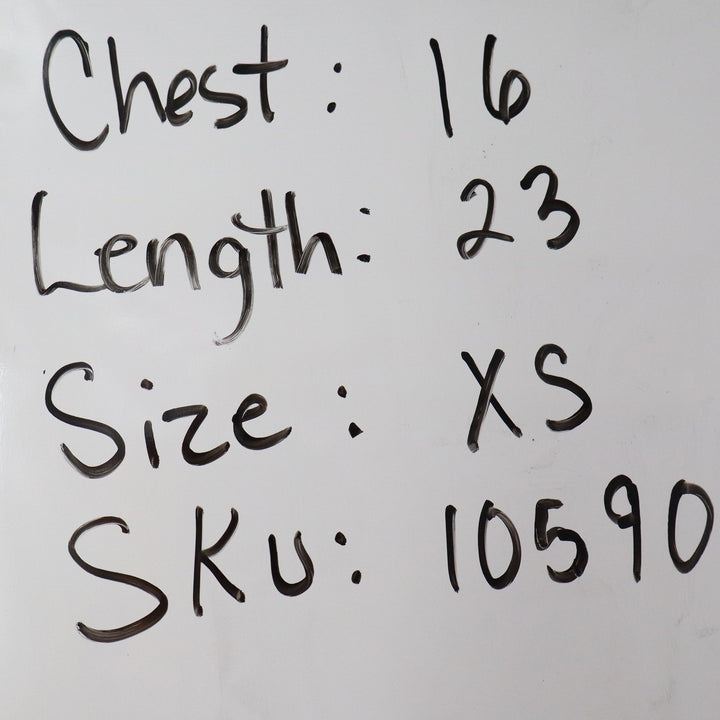 Chest: 16
Length: 23
Size: XS
SKU: 10590